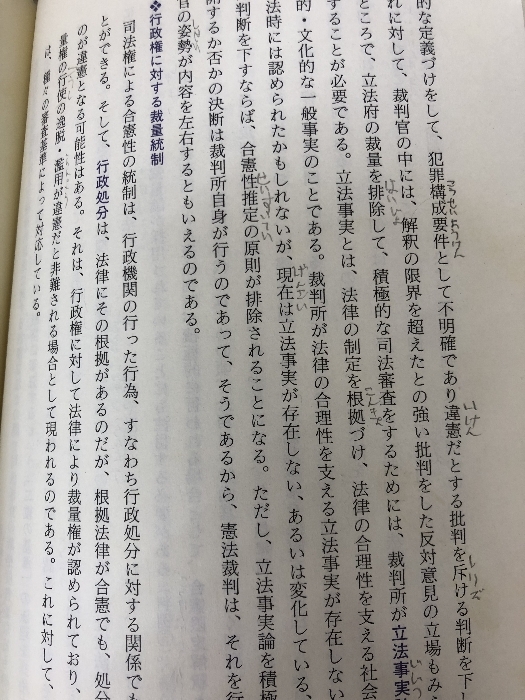 的な定義づけをして、犯罪構成要件として不明確であり違憲だとする批判を斥ける判断を下し
れに対して、裁判官の中には、解釈の限界を超えたとの強い批判をした反対意見の立場もみ
ところで、立法府の裁量を排除して、積極的な司法審査をするためには、裁判所が立法事実
することが必要である。立法事実とは、法律の制定を根拠づけ、法律の合理性を支える社会
的・文化的な一般事実のことである。裁判所が法律の合理性を支える立法事実が存在しない
立法時には認められたかもしれないが、現在は立法事実が存在しない、あるいは変化している、
判断を下すならば、合憲性推定の原則が排除されることになる。ただし、立法事実論を積極
用するか否かの決断は裁判所自身が行うのであって、そうであるから、憲法裁判は、それを行
官の姿勢が内容を左右するともいえるのである。
❖行政権に対する裁量統制
司法権による合憲性の統制は、行政機関の行った行為、すなわち行政処分に対する関係でも
とができる。そして、行政処分は、法律にその根拠があるのだが、根拠法律が合憲でも、処分
のが違憲となる可能性はある。それは、行政権に対して法律により裁量権が認められており、
量権の行使の逸脱・濫用が違憲だと非難される場合として現われるのである。これに対して、
は、種々の審査基準によって対応している。
こうせいようけん
いけん
しりぞ
はいじょ
こんきょ
げんざい
せいすいてい
しせい